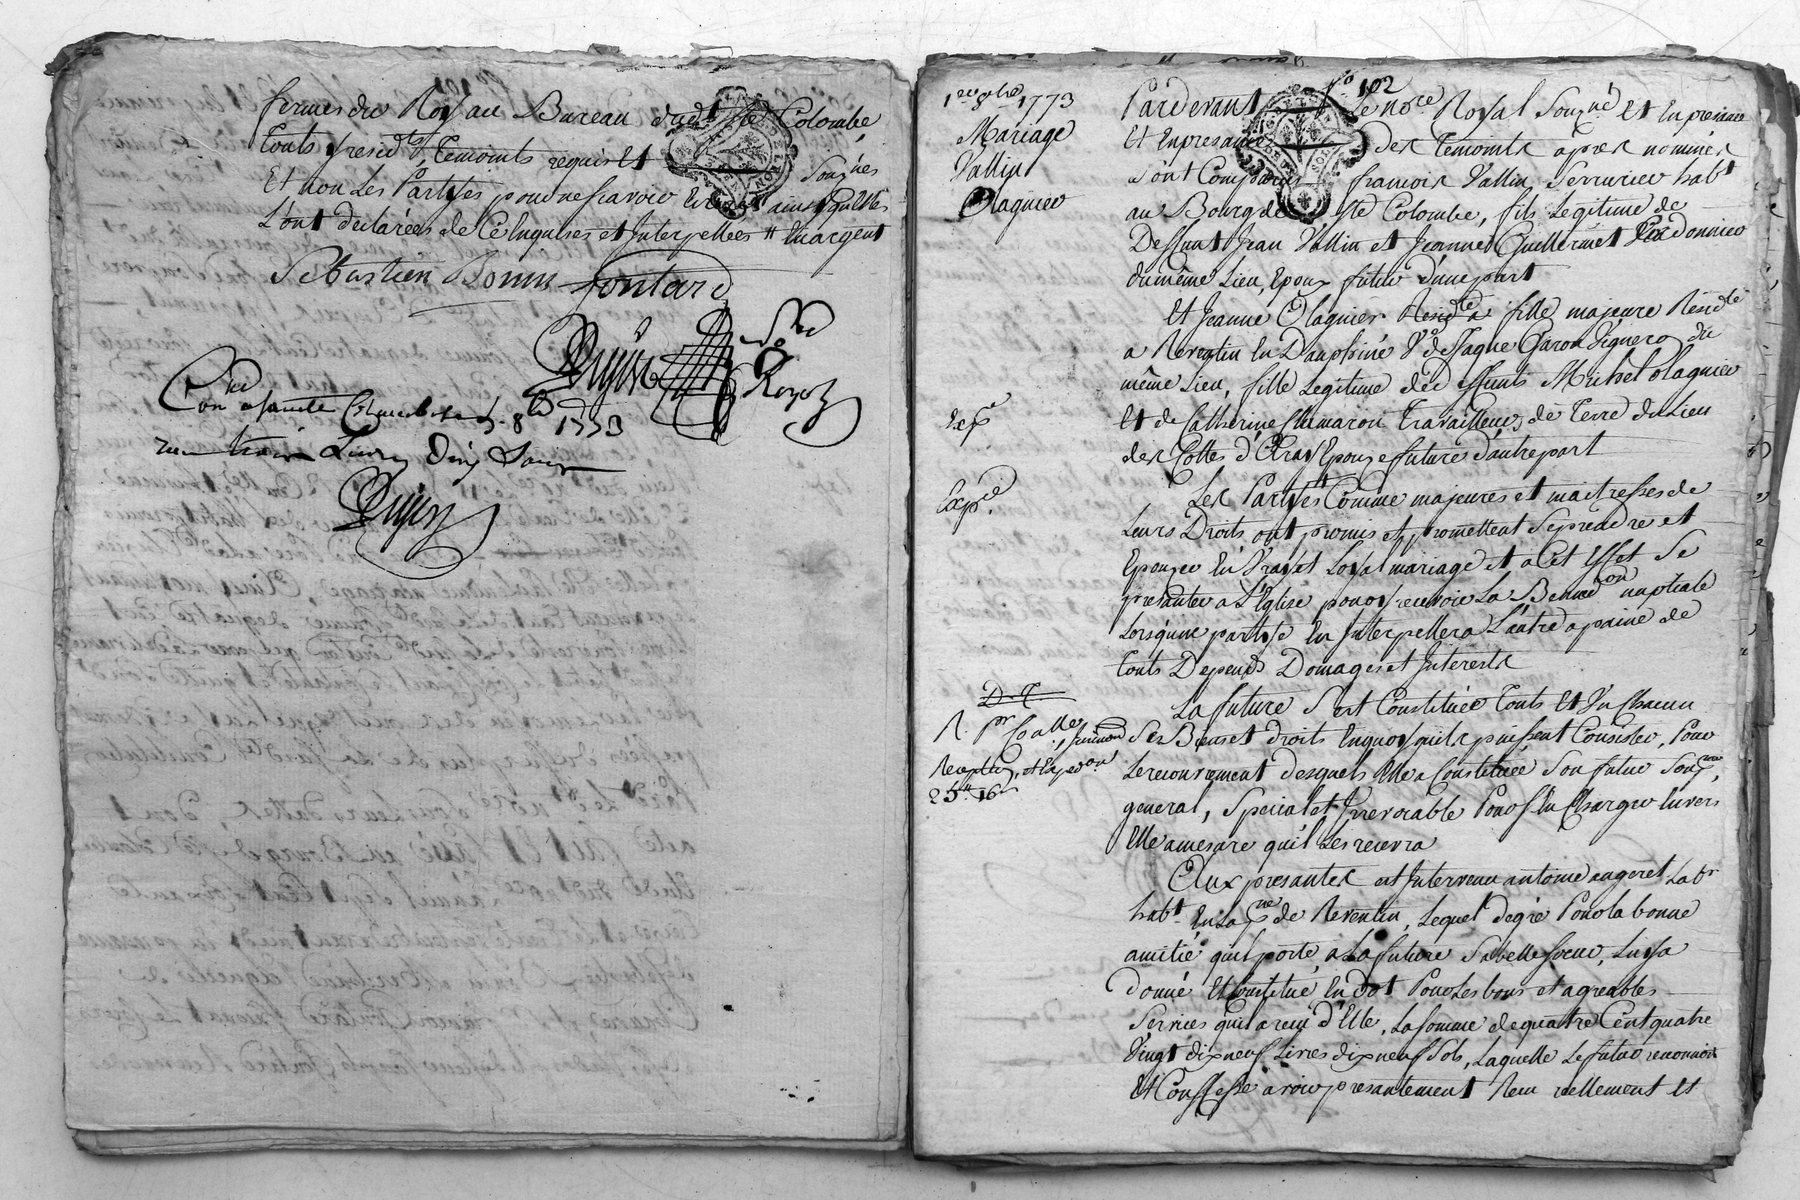 fermes du Roy au Bureau dudt Ste Colombe
touts presidts temoints requis et Sougnés
Et non Les Parties pour ne sçavoir Ecrire ainsy quelles
L'ont declarées de Ce Enquises et Interpellees # En argent
Sebastien Bonin fontard
Dujin Royol
Con a sainte Colombe le 5. 8b 1773
trois Livres Dix Sous
Dujin
fo 102
1er 8bre 1773
Mariage
Vallin
Olagnier
Pardevant Le nore Royal Sougné Et En presance
Et En presance des temoints apres nommés
Sont Comparus francois Vallin Serrurier habt
au Bourg de Ste Colombe, fils Legitime de
Deffunt Jean Vallin et Jeanne Guillermet Cordonnier
du même Lieu, Epoux futur d'une part
Et Jeanne Olagnier fille majeure Residte
a Reventin En Dauphiné Ve de Jaque Garon Vigneron du
même Lieu, fille Legitime de deffunts Michel Olagnier
Et de Catherine Chimaron travailleurs de Terre du Lieu
des Cottes d'Aray Epouze future d'autre part
Exp
Exp.ée
Les Parties Comme majeures et maitresses de
Leurs Droits ont promis et promettent Se prendre et
Epouzer En Vray et Loyal mariage et a Cet Effet Se
presanter a L'Eglise pour y recevoir La Benedon nuptiale
Lorsqu'une partie En Interpellera L'autre a paine de
touts Depends Domages et Interests
La future S'est Constituée touts Et Un Chacun
Ses Biens et droits En quoy quils puissent Consister, Pour
Le recouvrement desquels Elle a Constitué Son futur Son Proc
general, Special et Irrevocable Pour S'En Charger Envers
Elle a mesure qu'il Les recevra
D-C
R. pr Coalle
Reception, et Expedon
25tt 16s
Aux presantes est Intervenu antoine augeret Labr
habt En La psse de Reventin, Lequel de gré Pour la bonne
amitié qu'il porte a La future Sa belle soeur, Lui a
donné Et Constitué En dot Pour Les bons et agreables
Services qu'il a recu d'Elle, La Somme de quatre Cent quatre
Vingt dix neuf Livres dix neuf Sols, Laquelle Le futur reconnoit
Et Confesse avoir presantement Reçu reellement et